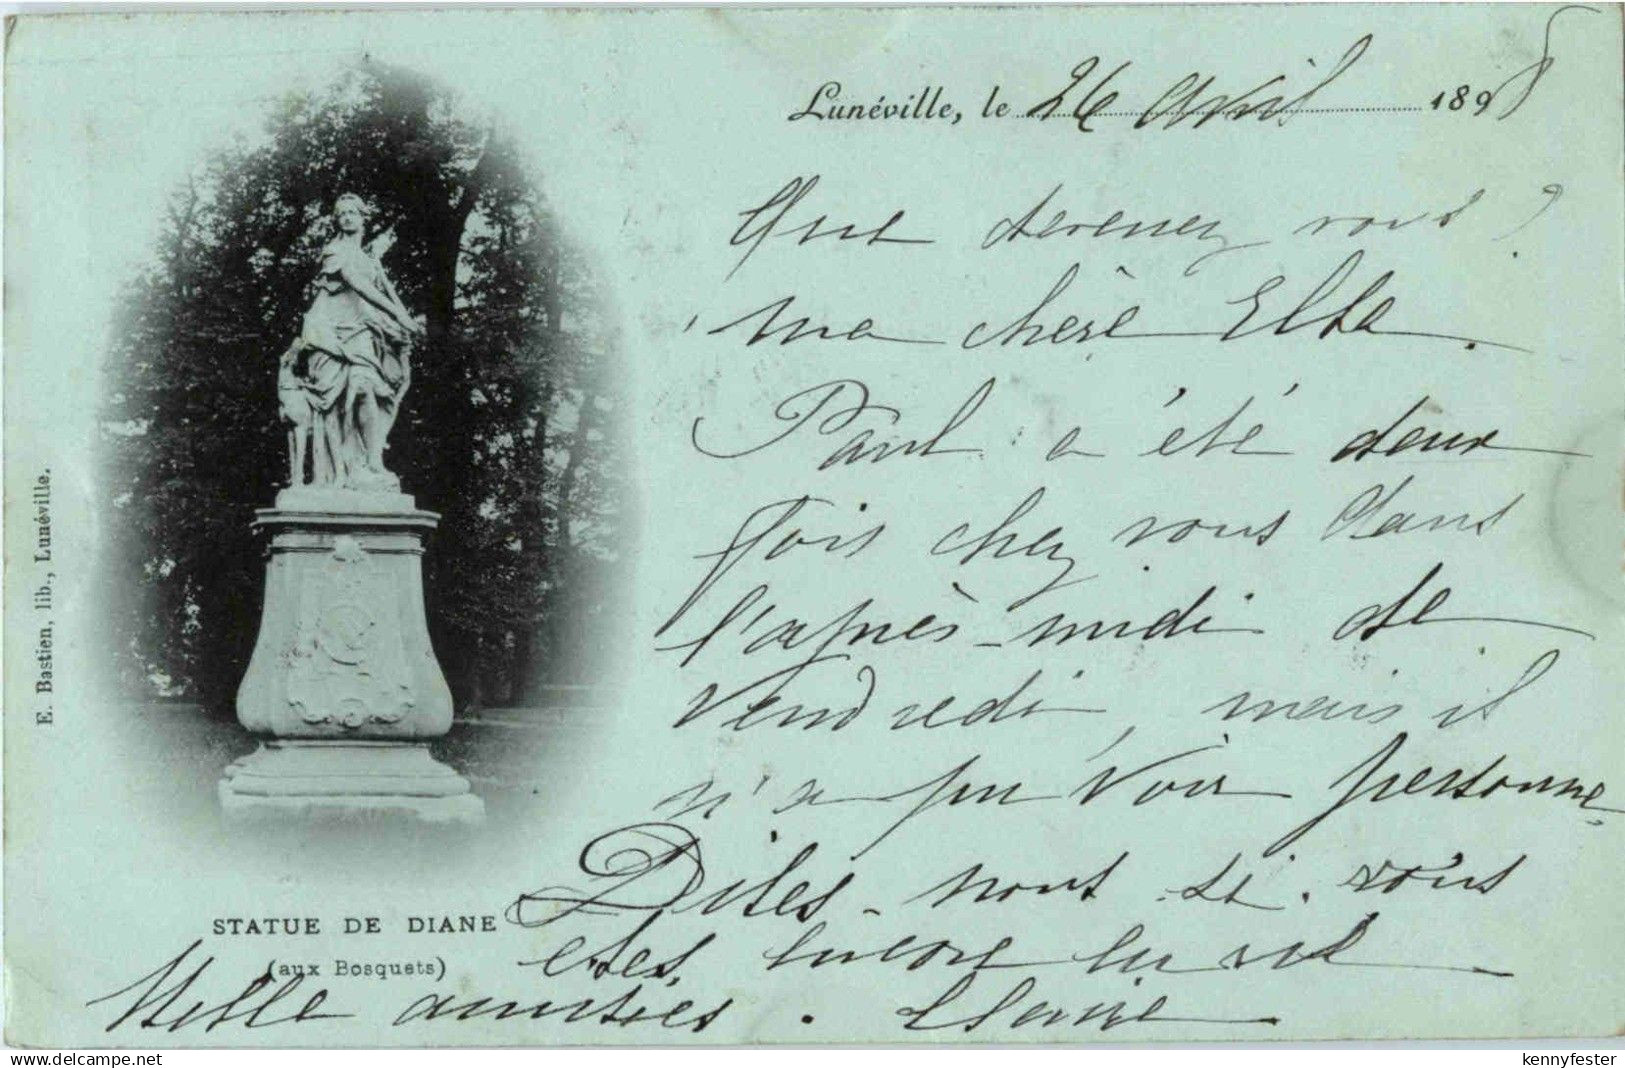 Lunéville, le 26 avril 1898
Que devenez vous ?
ma chère Elba.
Paul a été deux
fois chez vous dans
l'après-midi de
Vendredi, mais il
n'a pu voir personne,
Dites-nous si vous
êtes encore en vie
Mille amitiés. Claire
STATUE DE DIANE
(aux Bosquets)
E. Bastien, lib., Lunéville.
www.delcampe.net
kennyfester